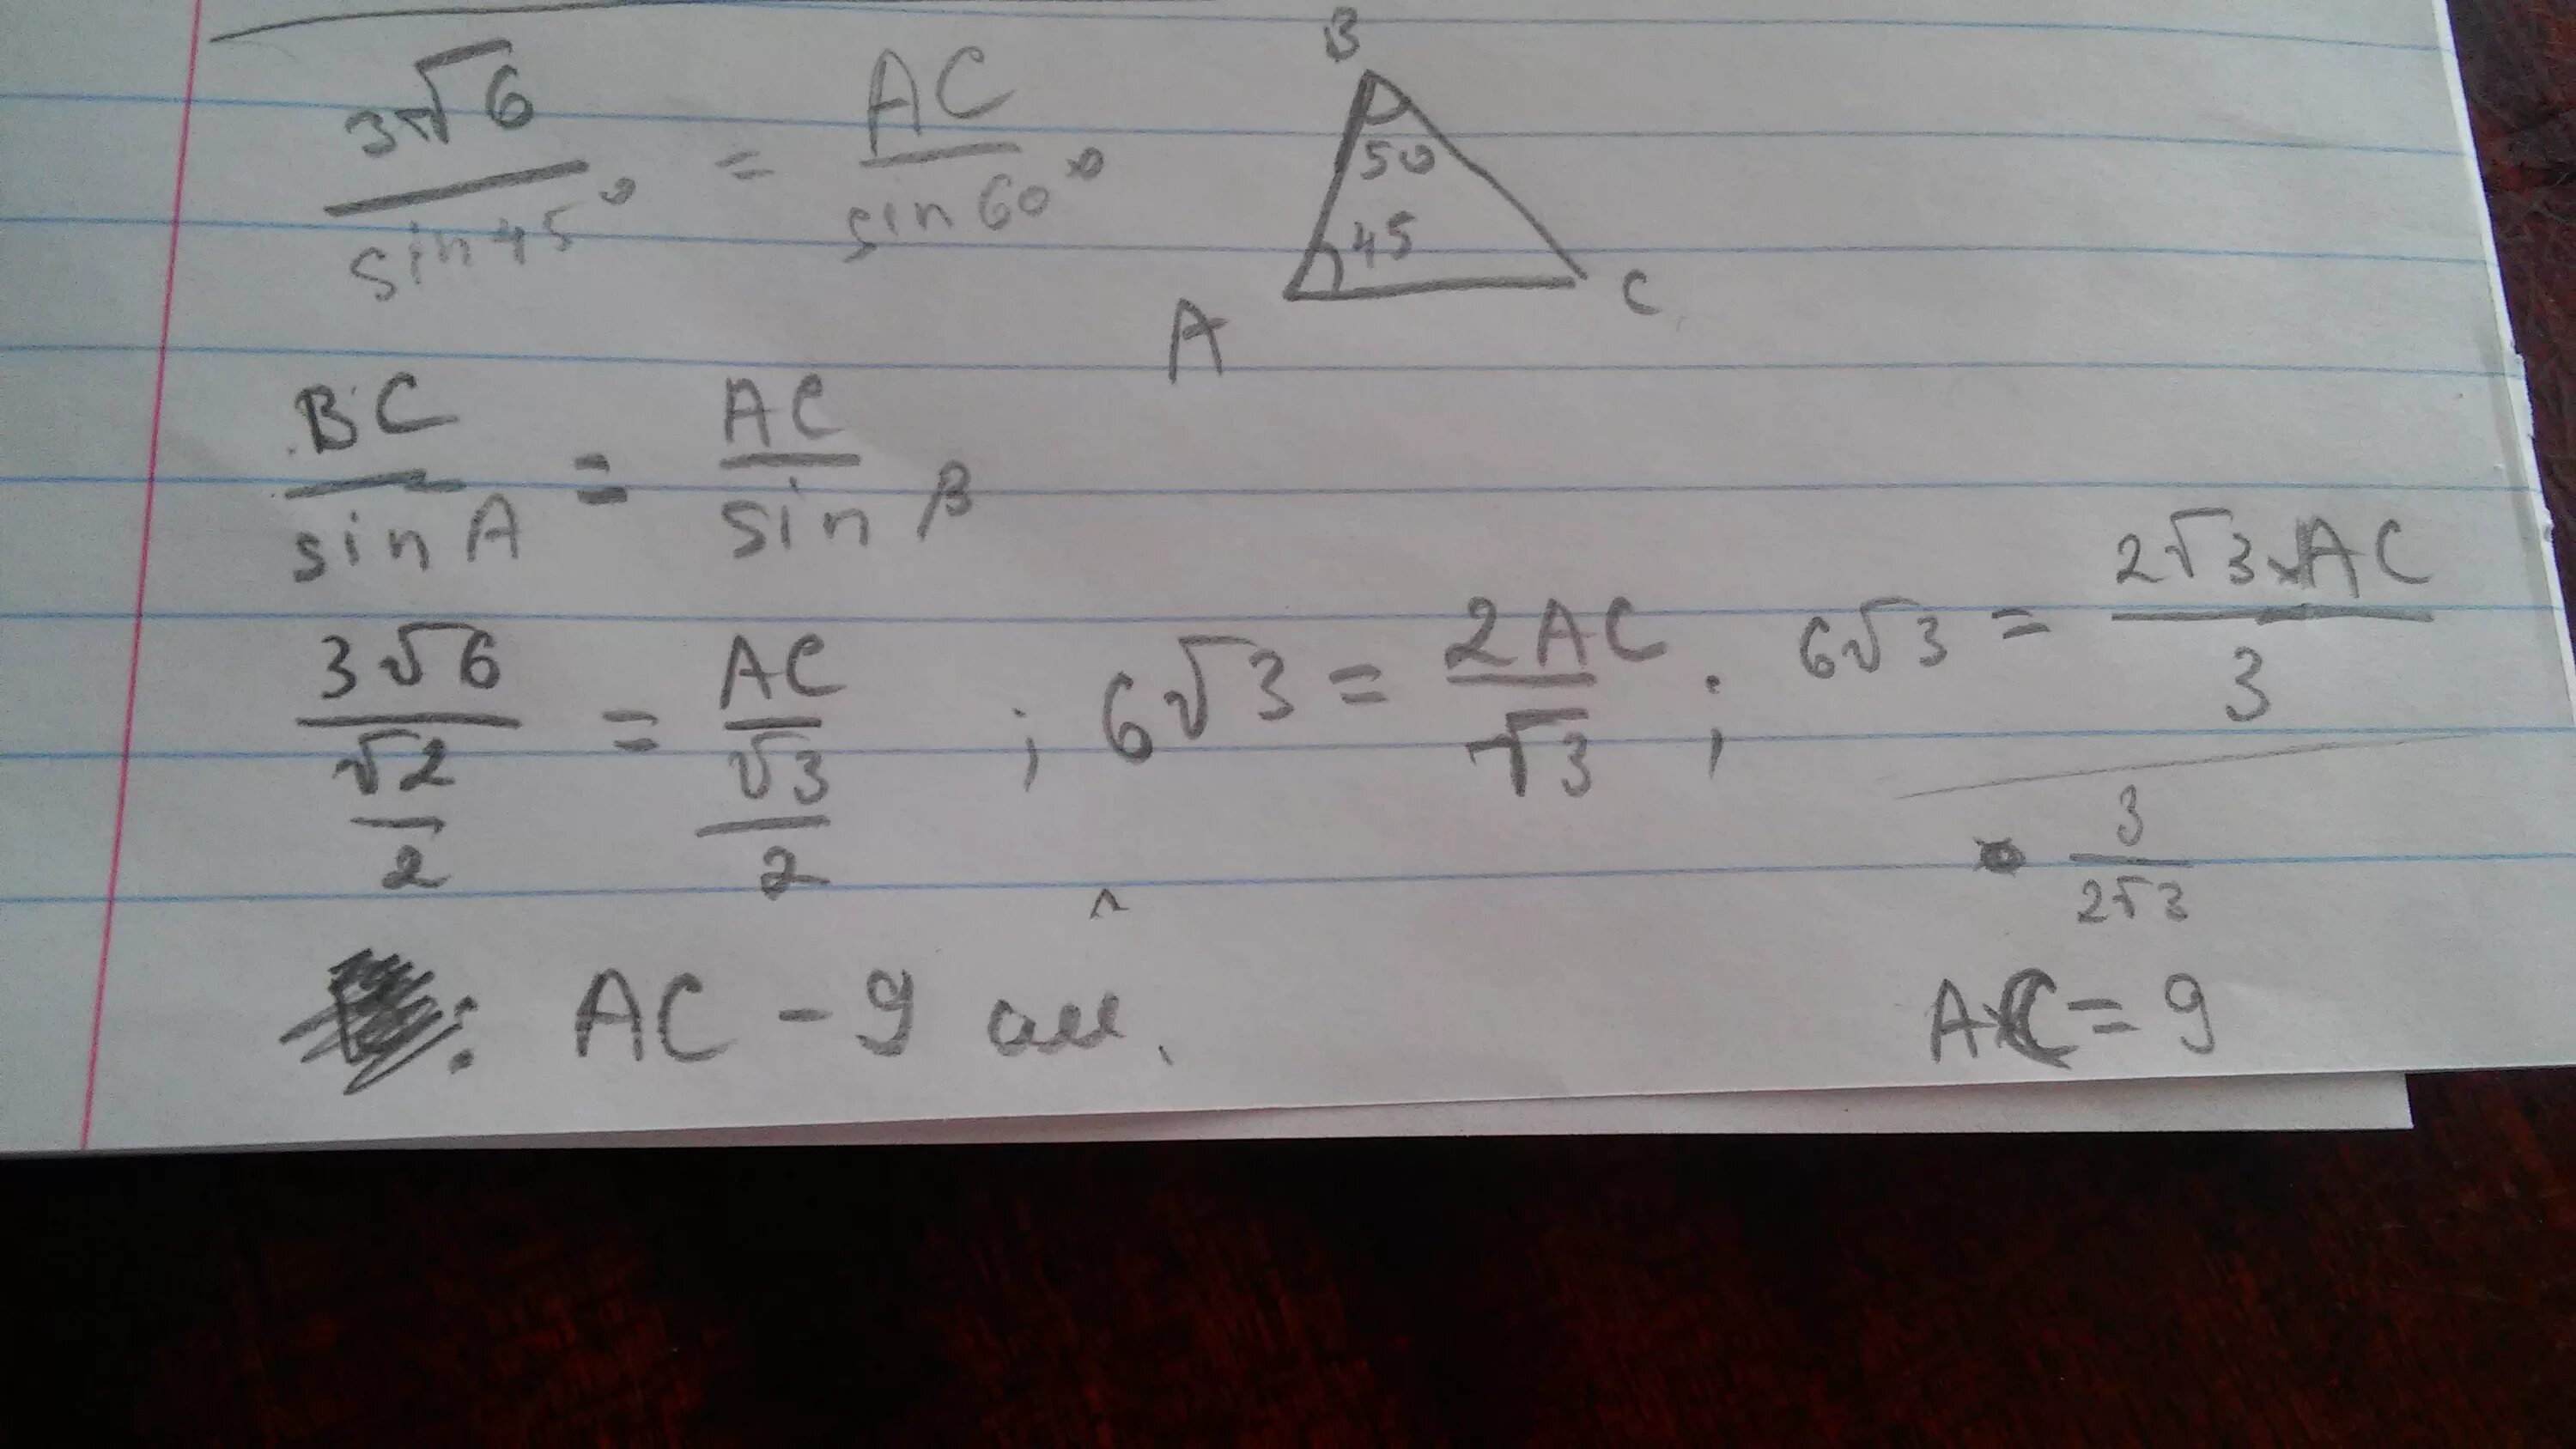 3√6 / sin45° = AC / sin60°
B
50
45
A
C
BC / sin A = AC / sin β
3√6 / (√2 / 2) = AC / (√3 / 2) ; 6√3 = 2AC / √3 ; 6√3 = 2√3 × AC / 3
3 / 2√3
: AC - 9
AC = 9